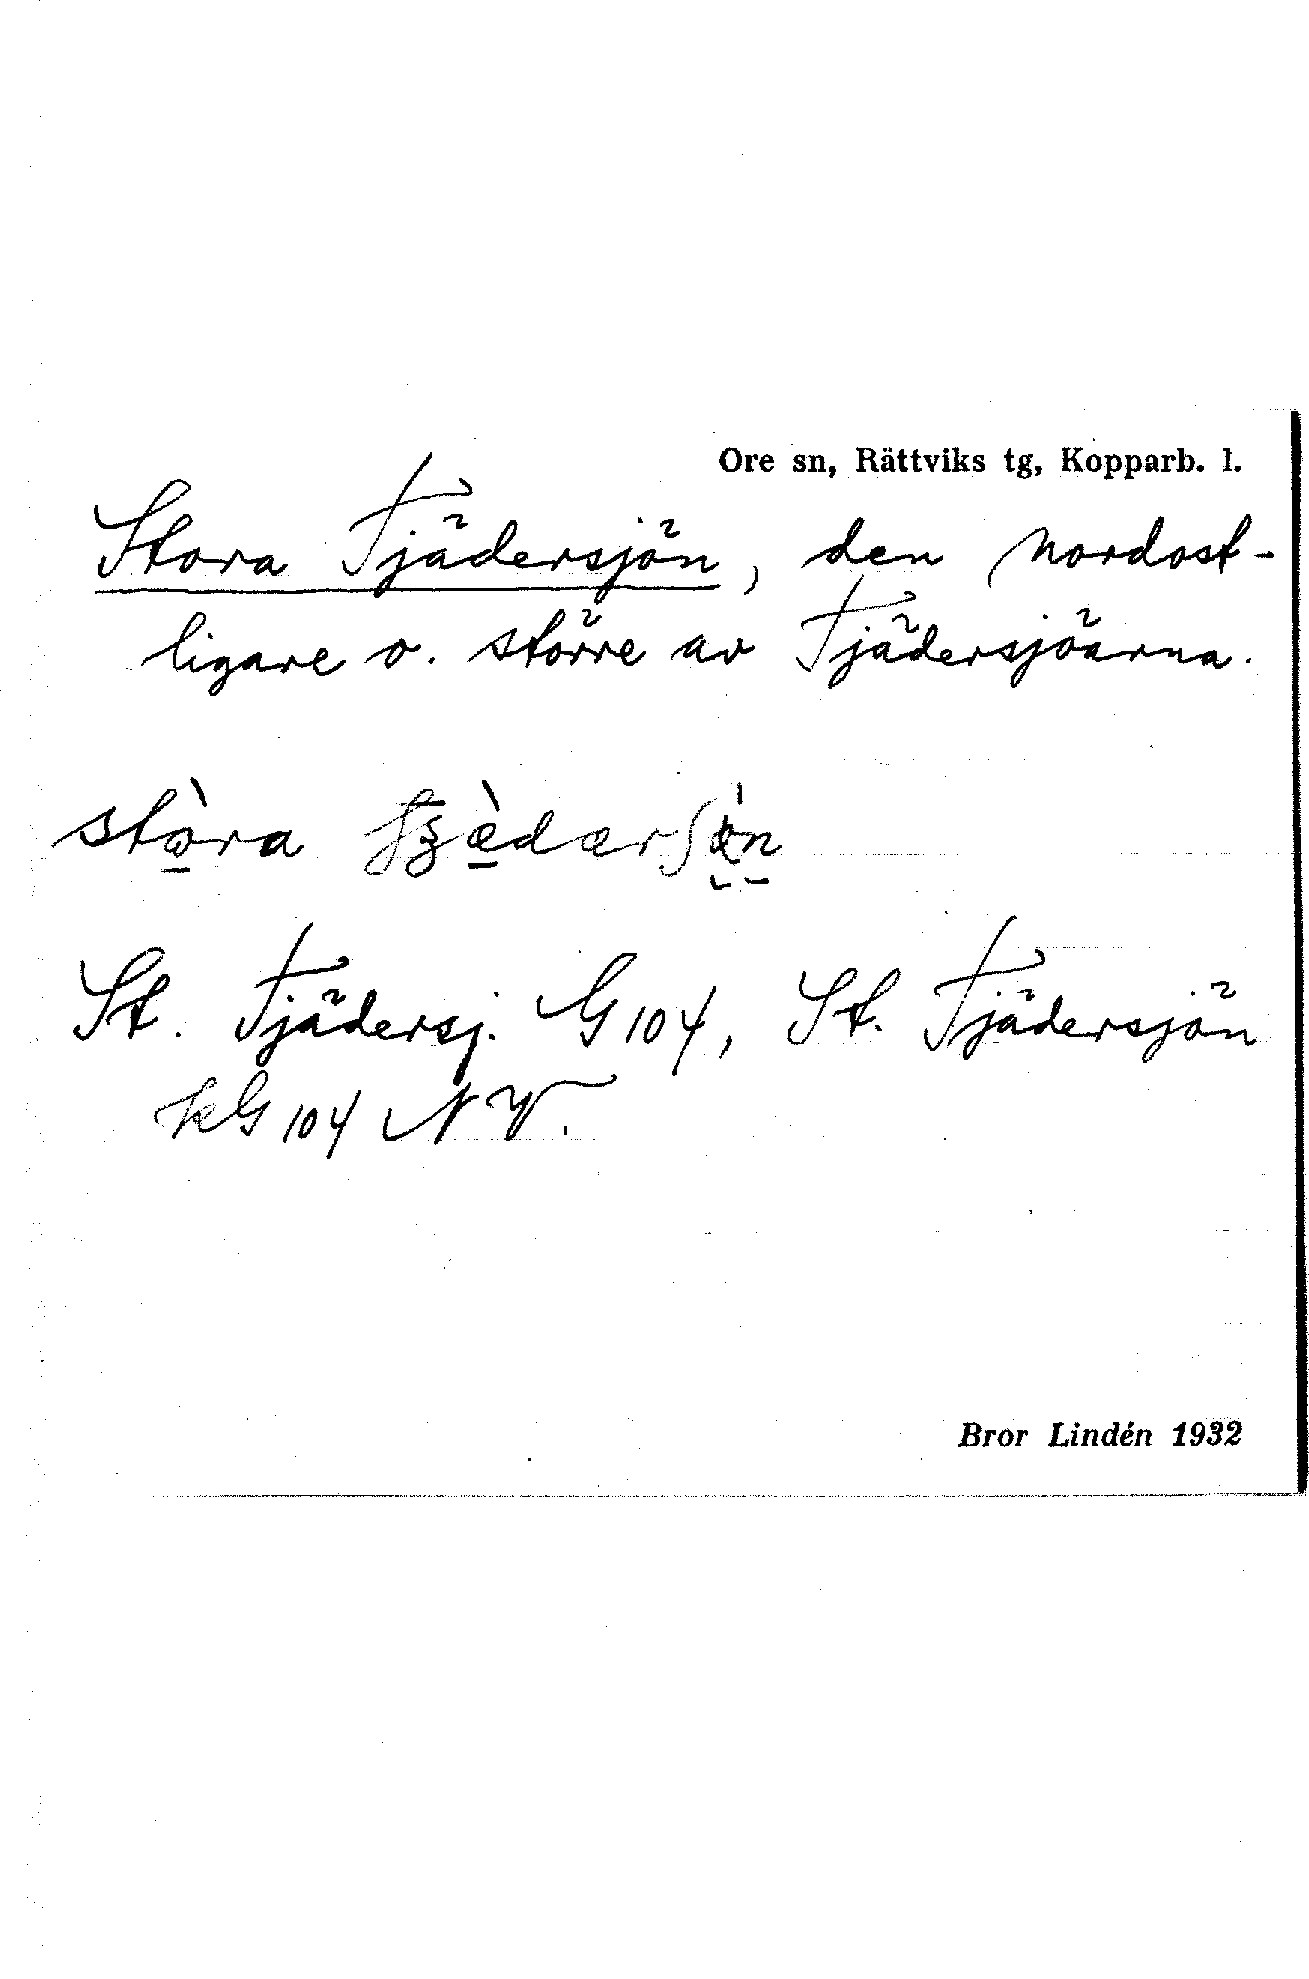 Ore sn, Rättviks tg, Kopparb. l.
Stora Tjädersjön, den nordost-
ligare o. större av Tjädersjöarna.
stòra
St. Tjädersj. G 104, St. Tjädersjön
kG 104 NV.
Bror Lindén 1932